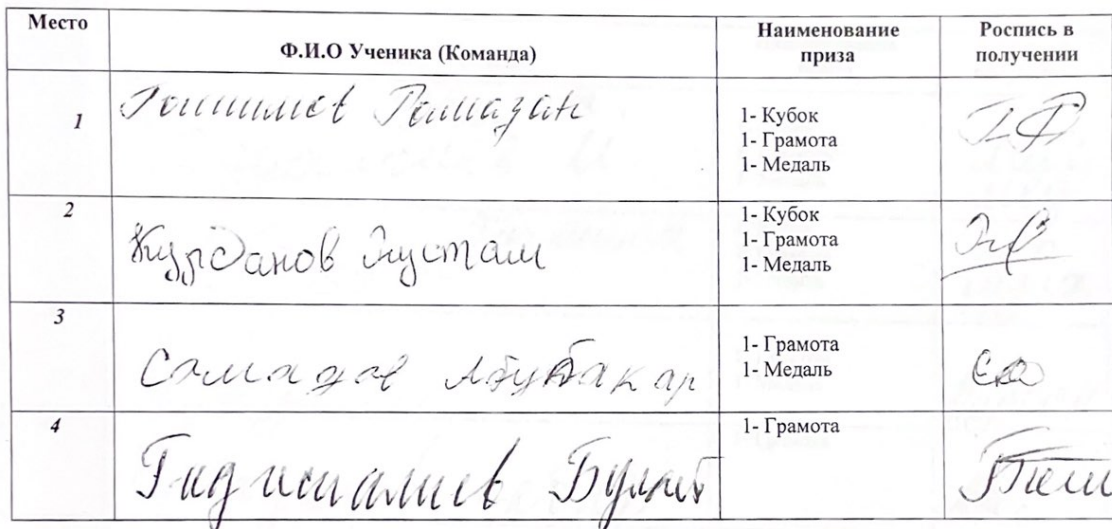 Место Ф.И.О Ученика (Команда) Наименование приза Роспись в получении
1 Рамазан
1- Кубок
1- Грамота
1- Медаль
2 Курбанов Рустам
1- Кубок
1- Грамота
1- Медаль
3 Самадов Абубакар
1- Грамота
1- Медаль
4 Булат
1- Грамота